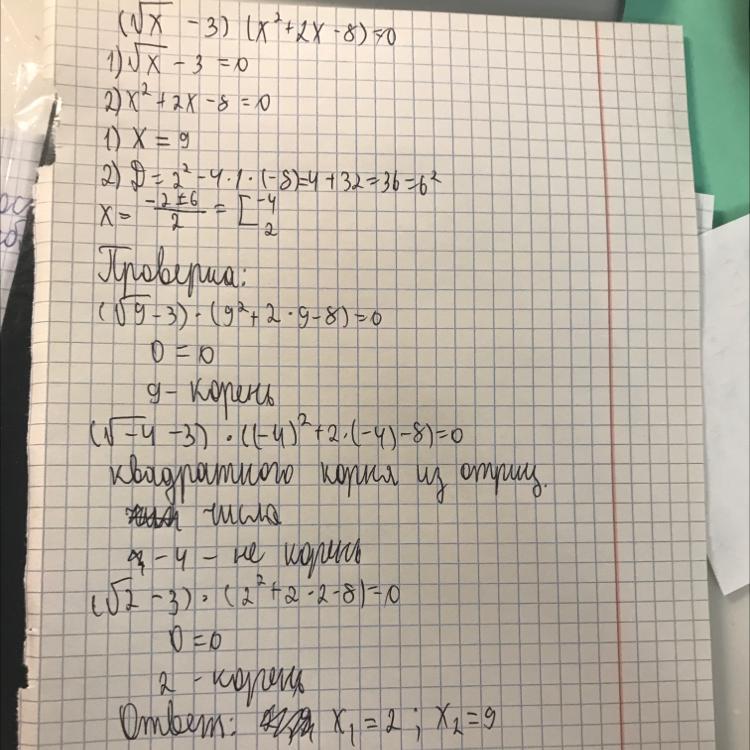 (√x - 3) (x² + 2x - 8) = 0
1) √x - 3 = 0
2) x² + 2x - 8 = 0
1) x = 9
2) D = 2² - 4 · 1 · (-8) = 4 + 32 = 36 = 6²
x = (-2 ± 6)/2 = [-4 2
Проверка:
(√9 - 3) · (9² + 2 · 9 - 8) = 0
0 = 0
9 - корень
(√-4 - 3) · ((-4)² + 2 · (-4) - 8) = 0
квадратного корня из отриц.
числа
-4 - не корень
(√2 - 3) · (2² + 2 · 2 - 8) = 0
0 = 0
2 - корень
Ответ: x₁ = 2 ; x₂ = 9